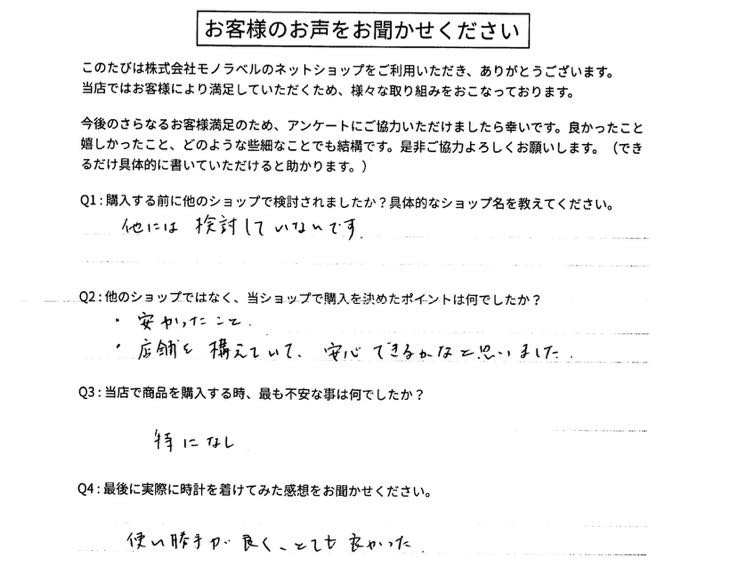 お客様のお声をお聞かせください
このたびは株式会社モノラベルのネットショップをご利用いただき、ありがとうございます。
当店ではお客様により満足していただくため、様々な取り組みをおこなっております。
今後のさらなるお客様満足のため、アンケートにご協力いただけましたら幸いです。良かったこと
嬉しかったこと、どのような些細なことでも結構です。是非ご協力よろしくお願いします。（でき
るだけ具体的に書いていただけると助かります。）
Q1：購入する前に他のショップで検討されましたか？具体的なショップ名を教えてください。
他には検討していないです.
Q2：他のショップではなく、当ショップで購入を決めたポイントは何でしたか？
・安かったこと.
・店舗を構えていて、安心できるかなと思いました.
Q3：当店で商品を購入する時、最も不安な事は何でしたか？
特になし
Q4：最後に実際に時計を着けてみた感想をお聞かせください。
使い勝手が良く、とても良かった.